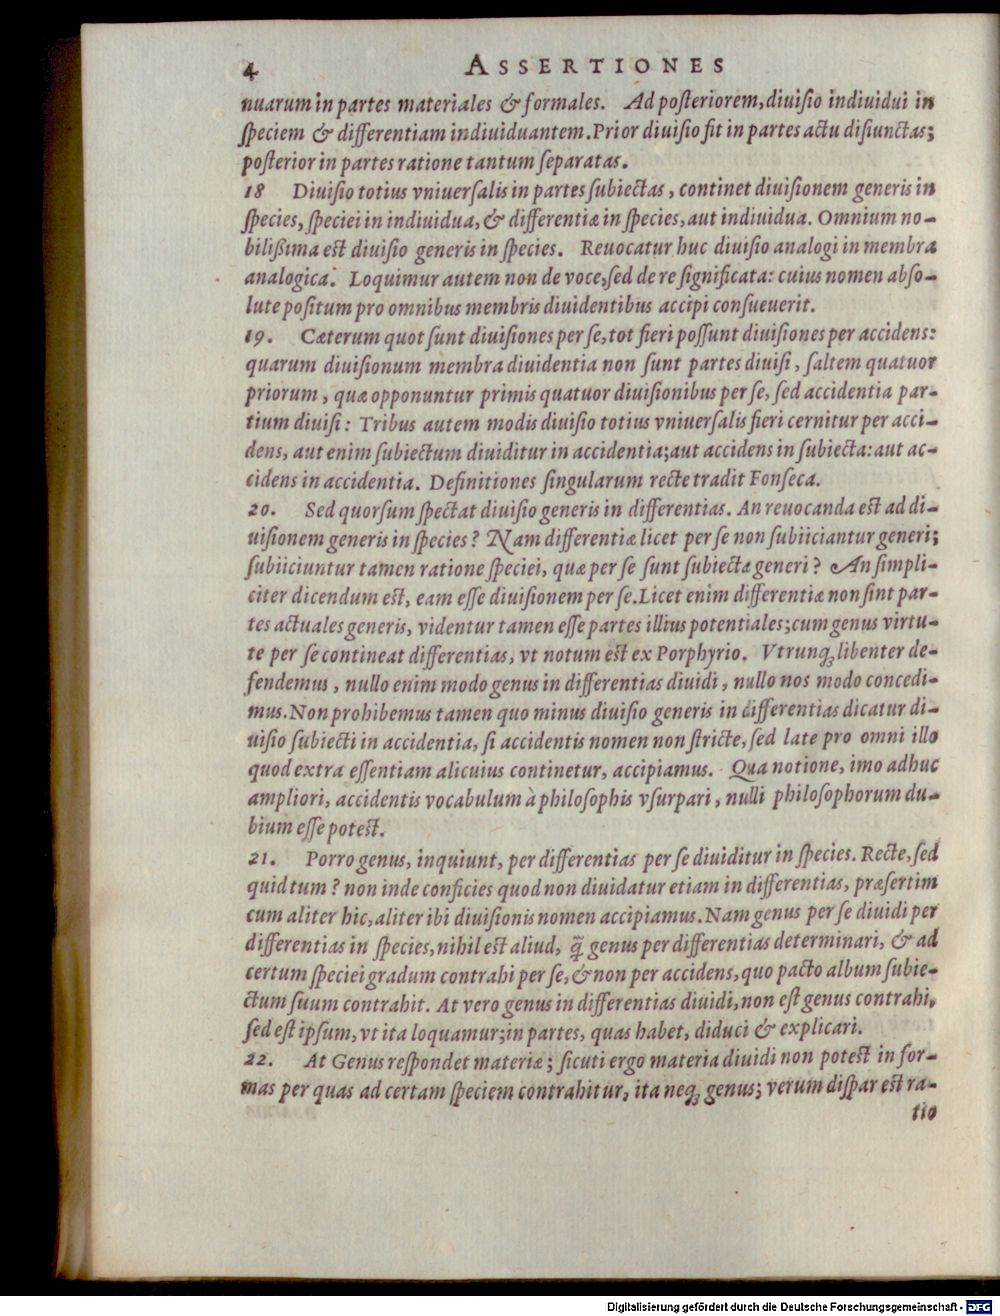 4 ASSERTIONES
nuarum in partes materiales & formales. Ad posteriorem, diuisio indiuidui in
speciem & differentiam indiuiduantem. Prior diuisio fit in partes actu disiunctas;
posterior in partes ratione tantum separatas.
18 Diuisio totius vniuersalis in partes subiectas, continet diuisionem generis in
species, speciei in indiuidua, & differentiæ in species, aut indiuidua. Omnium no-
bilißima est diuisio generis in species. Reuocatur huc diuisio analogi in membra
analogica. Loquimur autem non de voce, sed de re significata: cuius nomen abso-
lute positum pro omnibus membris diuidentibus accipi consueuerit.
19. Cæterum quot sunt diuisiones per se, tot fieri possunt diuisiones per accidens:
quarum diuisionum membra diuidentia non sunt partes diuisi, saltem quatuor
priorum, quæ opponuntur primis quatuor diuisionibus per se, sed accidentia par-
tium diuisi: Tribus autem modis diuisio totius vniuersalis fieri cernitur per acci-
dens, aut enim subiectum diuiditur in accidentia; aut accidens in subiecta: aut ac-
cidens in accidentia. Definitiones singularum recte tradit Fonseca.
20. Sed quorsum spectat diuisio generis in differentias. An reuocanda est ad di-
uisionem generis in species? Nam differentiæ licet per se non subiiciantur generi;
subiiciuntur tamen ratione speciei, quæ per se sunt subiectæ generi? An simpli-
citer dicendum est, eam esse diuisionem per se. Licet enim differentiæ non sint par-
tes actuales generis, videntur tamen esse partes illius potentiales; cum genus virtu-
te per se contineat differentias, vt notum est ex Porphyrio. Vtrunq; libenter de-
fendemus, nullo enim modo genus in differentias diuidi, nullo nos modo concedi-
mus. Non prohibemus tamen quo minus diuisio generis in differentias dicatur di-
uisio subiecti in accidentia, si accidentis nomen non stricte, sed late pro omni illo
quod extra essentiam alicuius continetur, accipiamus. Qua notione, imo adhuc
ampliori, accidentis vocabulum à philosophis vsurpari, nulli philosophorum du-
bium esse potest.
21. Porro genus, inquiunt, per differentias per se diuiditur in species. Recte, sed
quid tum? non inde conficies quod non diuidatur etiam in differentias, præsertim
cum aliter hic, aliter ibi diuisionis nomen accipiamus. Nam genus per se diuidi per
differentias in species, nihil est aliud, q̃ genus per differentias determinari, & ad
certum speciei gradum contrahi per se, & non per accidens, quo pacto album subie-
ctum suum contrahit. At vero genus in differentias diuidi, non est genus contrahi,
sed est ipsum, vt ita loquamur; in partes, quas habet, diduci & explicari.
22. At Genus respondet materiæ; sicuti ergo materia diuidi non potest in for-
mas per quas ad certam speciem contrahitur, ita neq; genus; verum dispar est ra-
tio
Digitalisierung gefördert durch die Deutsche Forschungsgemeinschaft - DFG